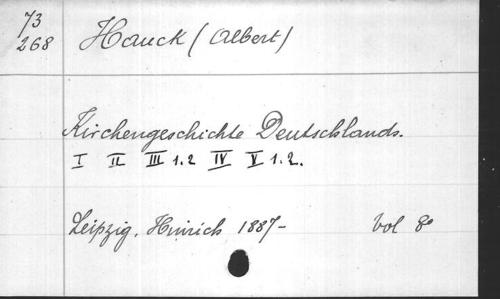 73
268 Hauck (Albert)
Kirchengeschichte Deutschlands.
I II III 1.2 IV V 1.2.
Leipzig, Hinrich 1887- vol 8°